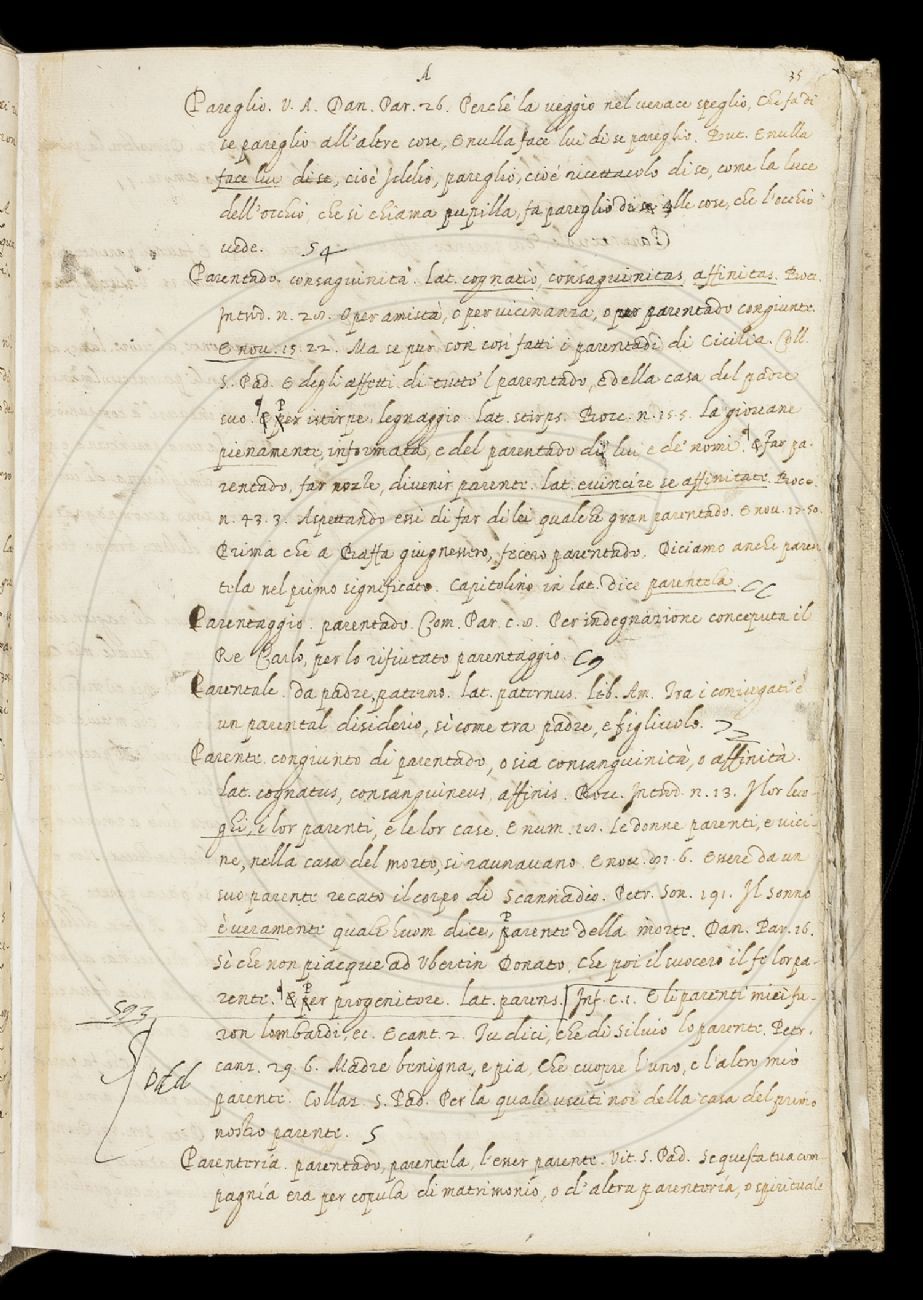 A
35
Pareglio. V. A. Dan. Par. 26. Perche la veggio nel verace speglio, Che fa di
se pareglio all'altre cose, E nulla face lui di se pareglio. But. E nulla
face lui di se, cioè Iddio, pareglio, cioè ricettacolo di se, come la luce
dell'occhio, che si chiama pupilla, fa pareglio di se alle cose, che l'occhio
vede. 54
Parentado. consaguinità. lat. cognatio, consaguinitas affinitas. Bocc.
Introd. n. O per amistà, o per vicinanza, o per parentado congiunte.
E nov. 15. 22. Ma se pur con così fatti i parentadi di Cicilia. Coll.
S. Pad. E degli affetti di tutto 'l parentado, e della casa del padre
suo. ¶ Per istirpe, legnaggio. lat. stirps. Bocc. n. 15. 5. la giovane
pienamente informata, e del parentado di lui e de' nomi. ¶ Far pa-
rentado, far nozze, divenir parente. lat. evincire se affinitate. Bocc.
n. 43. 3. Aspettando essi di far di lei qualche gran parentado. E nov. 17. 50.
Prima che a Baffa giugnessero, fecero parentado. Diciamo anche paren
tela nel primo significato. Capitolino in lat. dice parentela.
Parentaggio. parentado. Com. Par. c. 8. Per indegnazione conceputa il
Re Carlo, per lo rifiutato parentaggio.
Parentale. da padre, paterno. lat. paternus. Lib. Am. Tra i coniugati è
un parental disiderio, sì come tra padre, e figliuolo.
Parente. congiunto di parentado, o sia consanguinità, o affinità.
lat. cognatus, consanguineus, affinis. Bocc. Introd. n. 13. I lor luo-
ghi, i lor parenti, e le lor case. E num. 18. Le donne parenti, e vici-
ne, nella casa del morto, si raunavano. E nov. 81. 6. Essere da un
suo parente recato il corpo di Scannadio. Petr. Son. 191. Il sonno
è veramente qual'huom dice, Parente della morte. Dan. Par. 16.
Sì che non piacque ad Ubertin Donato, Che poi il suocero il fe lor pa-
rente. ¶ Per progenitore. lat. parens. Inf. c. 1. E li parenti miei fu-
ron lombardi, ec. E cant. 2. Tu dici, che di Silvio lo parente. Petr.
canz. 29. 6. Madre benigna, e pia, Che cuopre l'uno, e l'altro mio
parente. Collaz. S. Pad. Per la quale usciti noi della casa del primo
nostro parente. 5
593
Parenteria. parentado, parentela, l'esser parente. Vit. S. Pad. Se questa tua com
pagnia era per copula di matrimonio, o d'altra parenteria, o spirituale